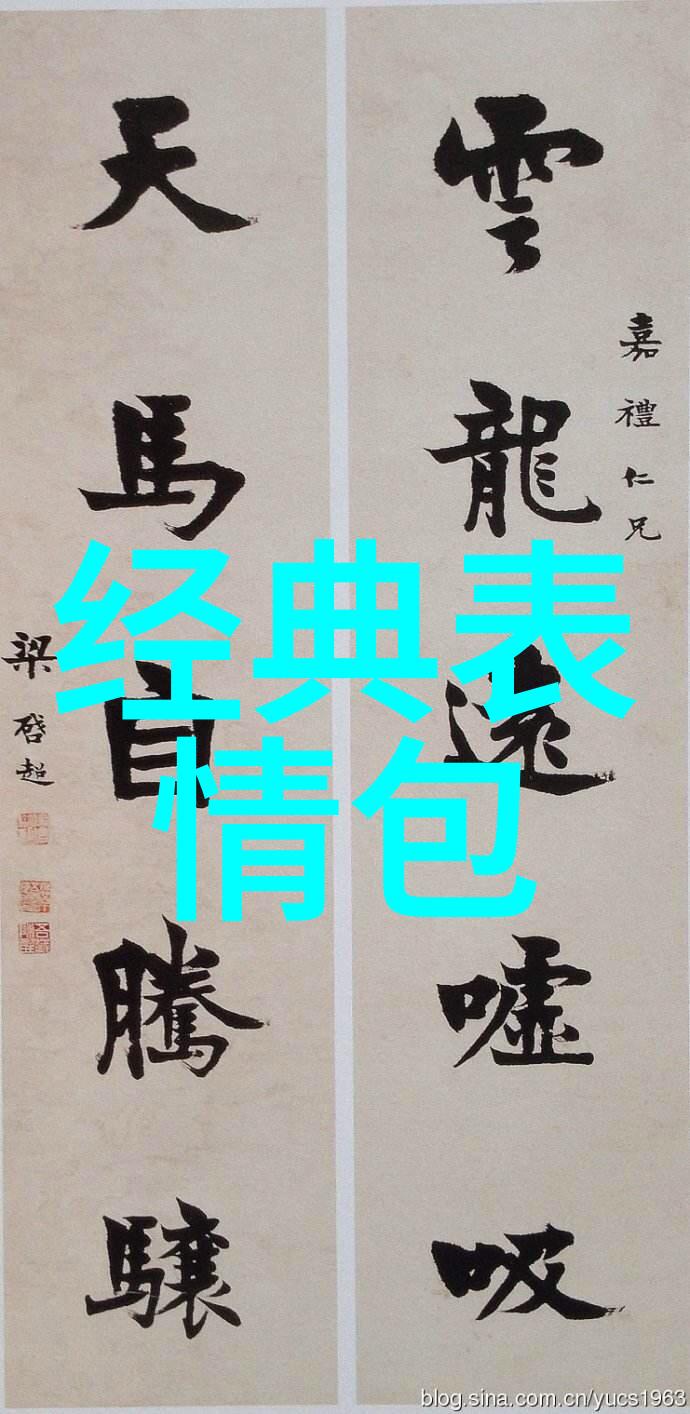 雲龍遠噓吸
嘉禮仁兄
天馬自騰驤
梁啓超
经典表
情包
blog.sina.com.cn/yucs1963